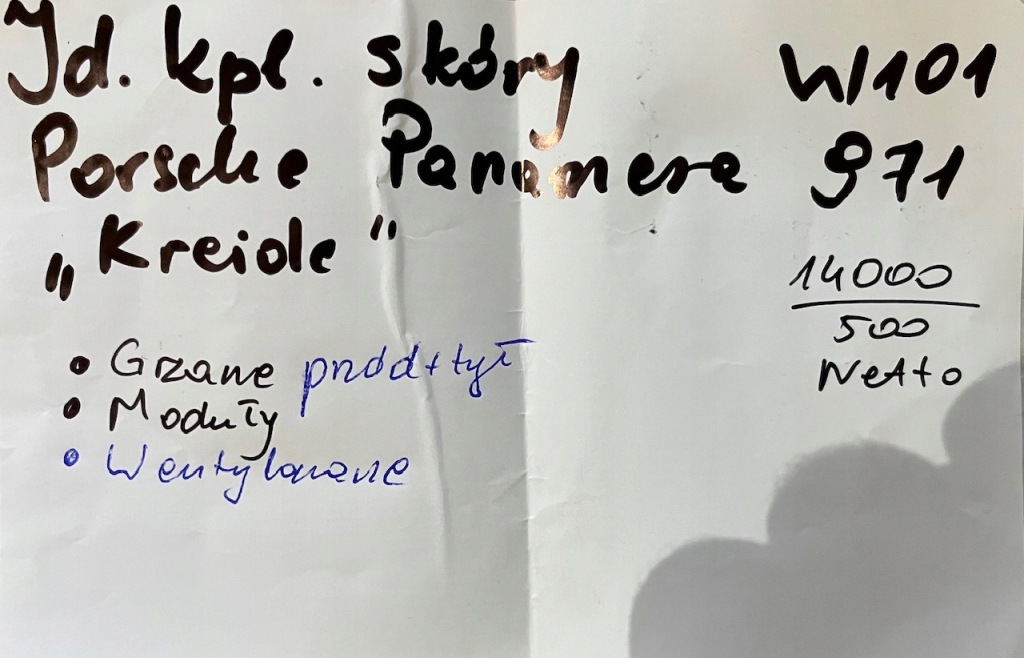 Id. kpl. skóry W101
Porsche Panamera 971
„Kreide"
14000
500
Netto
• Grzane przód+tył
• Moduły
• Wentylowane